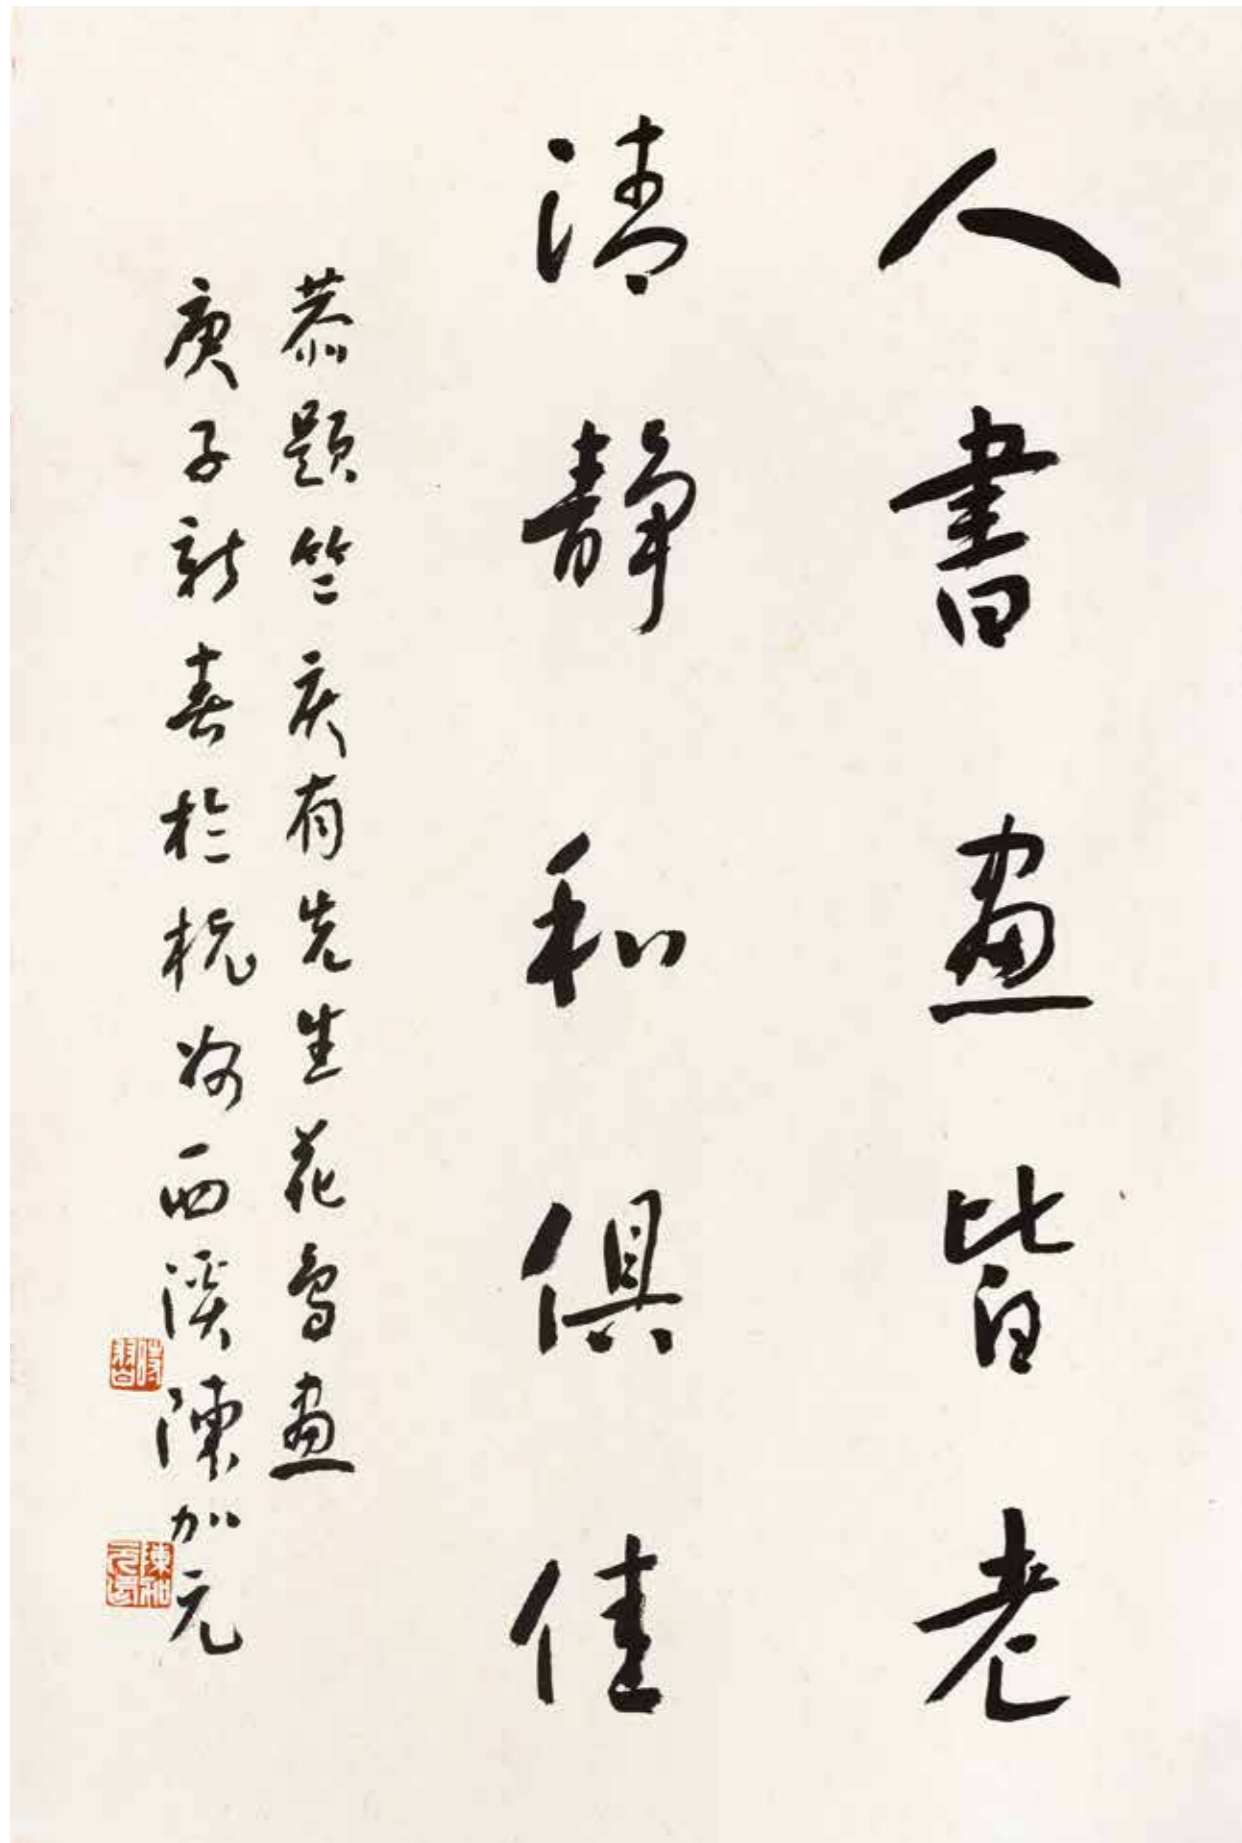 人書畫皆老
清靜和俱佳
恭題竺庆有先生花鳥畫
庚子新春於杭州西溪陳加元
時習
陳加元印